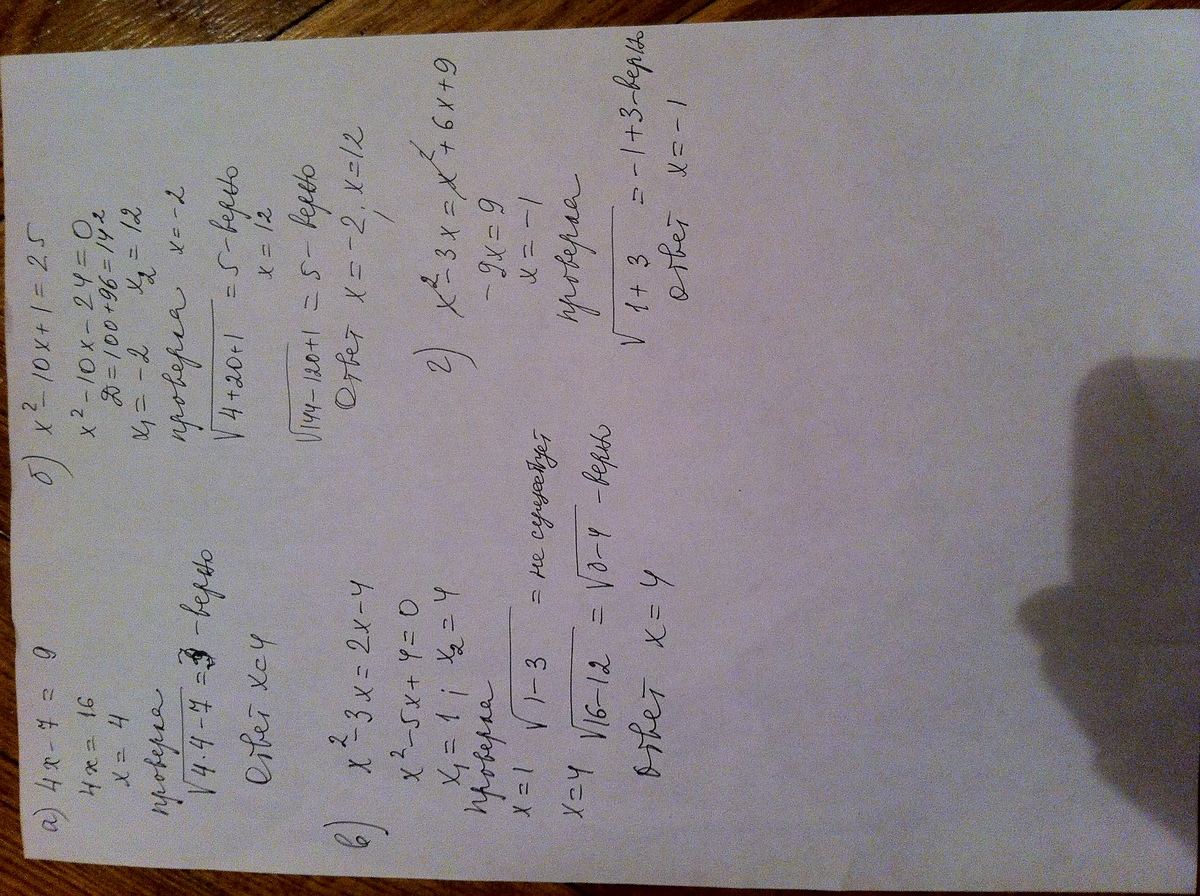 а) 4x - 7 = 9
4x = 16
x = 4
проверка
√4·4-7 = 3 - верно
Ответ x=4
б) x² - 10x + 1 = 25
x² - 10x - 24 = 0
D = 100 + 96 = 14²
x₁ = -2 x₂ = 12
проверка x = -2
√4+20+1 = 5 - верно
x = 12
√144-120+1 = 5 - верно
Ответ x = -2, x = 12
в) x² - 3x = 2x - 4
x² - 5x + 4 = 0
x₁ = 1; x₂ = 4
проверка
x = 1 √1-3 = не существует
x = 4 √16-12 = √8-4 - верно
Ответ x = 4
г) x² - 3x = x² + 6x + 9
-9x = 9
x = -1
проверка
√1+3 = -1+3 - верно
Ответ x = -1